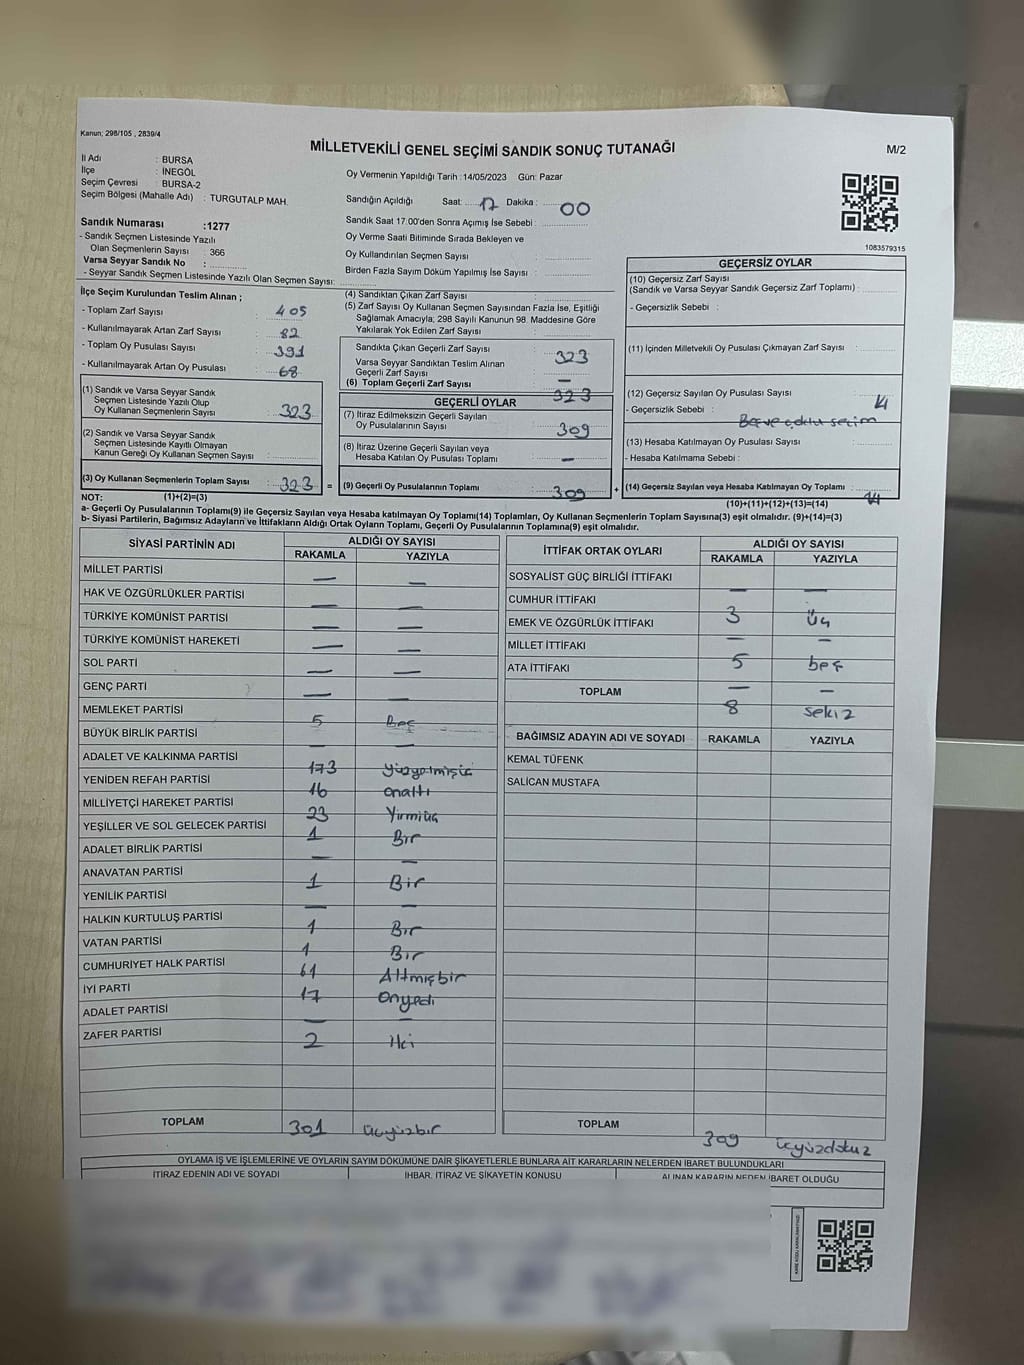 Kanun; 298/105 , 2839/4
MİLLETVEKİLİ GENEL SEÇİMİ SANDIK SONUÇ TUTANAĞI
M/2
İl Adı : BURSA
İlçe : İNEGÖL
Seçim Çevresi : BURSA-2
Seçim Bölgesi (Mahalle Adı) : TURGUTALP MAH.
Sandık Numarası :1277
- Sandık Seçmen Listesinde Yazılı
Olan Seçmenlerin Sayısı : 366
Varsa Seyyar Sandık No :
- Seyyar Sandık Seçmen Listesinde Yazılı Olan Seçmen Sayısı:
Oy Vermenin Yapıldığı Tarih :14/05/2023 Gün: Pazar
Sandığın Açıldığı Saat: 17 Dakika : 00
Sandık Saat 17:00'den Sonra Açımış İse Sebebi :
Oy Verme Saati Bitiminde Sırada Bekleyen ve
Oy Kullandırılan Seçmen Sayısı :
Birden Fazla Sayım Döküm Yapılmış İse Sayısı :
1083579315
İlçe Seçim Kurulundan Teslim Alınan ;
- Toplam Zarf Sayısı : 405
- Kullanılmayarak Artan Zarf Sayısı : 82
- Toplam Oy Pusulası Sayısı : 391
- Kullanılmayarak Artan Oy Pusulası : 68
(1) Sandık ve Varsa Seyyar Sandık
Seçmen Listesinde Yazılı Olup
Oy Kullanan Seçmenlerin Sayısı : 323
(2) Sandık ve Varsa Seyyar Sandık
Seçmen Listesinde Kayıtlı Olmayan
Kanun Gereği Oy Kullanan Seçmen Sayısı :
(3) Oy Kullanan Seçmenlerin Toplam Sayısı : 323 =
(4) Sandıktan Çıkan Zarf Sayısı :
(5) Zarf Sayısı Oy Kullanan Seçmen Sayısından Fazla İse, Eşitliği
Sağlamak Amacıyla; 298 Sayılı Kanunun 98. Maddesine Göre
Yakılarak Yok Edilen Zarf Sayısı :
Sandıkta Çıkan Geçerli Zarf Sayısı : 323
Varsa Seyyar Sandıktan Teslim Alınan
Geçerli Zarf Sayısı : —
(6) Toplam Geçerli Zarf Sayısı : 323
GEÇERLİ OYLAR
(7) İtiraz Edilmeksizin Geçerli Sayılan
Oy Pusulalarının Sayısı : 309
(8) İtiraz Üzerine Geçerli Sayılan veya
Hesaba Katılan Oy Pusulası Toplamı : —
(9) Geçerli Oy Pusulalarının Toplamı : 309 +
GEÇERSİZ OYLAR
(10) Geçersiz Zarf Sayısı
(Sandık ve Varsa Seyyar Sandık Geçersiz Zarf Toplamı) :
- Geçersizlik Sebebi :
(11) İçinden Milletvekili Oy Pusulası Çıkmayan Zarf Sayısı :
(12) Geçersiz Sayılan Oy Pusulası Sayısı : 14
- Geçersizlik Sebebi :
(13) Hesaba Katılmayan Oy Pusulası Sayısı :
- Hesaba Katılmama Sebebi :
(14) Geçersiz Sayılan veya Hesaba Katılmayan Oy Toplamı : 14
NOT: (1)+(2)=(3)
(10)+(11)+(12)+(13)=(14)
a- Geçerli Oy Pusulalarının Toplamı(9) ile Geçersiz Sayılan veya Hesaba katılmayan Oy Toplamı(14) Toplamları, Oy Kullanan Seçmenlerin Toplam Sayısına(3) eşit olmalıdır. (9)+(14)=(3)
b- Siyasi Partilerin, Bağımsız Adayların ve İttifakların Aldığı Ortak Oyların Toplamı, Geçerli Oy Pusulalarının Toplamına(9) eşit olmalıdır.
SİYASİ PARTİNİN ADI ALDIĞI OY SAYISI
RAKAMLA YAZIYLA
MİLLET PARTİSİ — —
HAK VE ÖZGÜRLÜKLER PARTİSİ — —
TÜRKİYE KOMÜNİST PARTİSİ — —
TÜRKİYE KOMÜNİST HAREKETİ — —
SOL PARTİ — —
GENÇ PARTİ — —
MEMLEKET PARTİSİ 5 Beş
BÜYÜK BİRLİK PARTİSİ — —
ADALET VE KALKINMA PARTİSİ 173 yüzyetmişüç
YENİDEN REFAH PARTİSİ 16 onaltı
MİLLİYETÇİ HAREKET PARTİSİ 23 Yirmiüç
YEŞİLLER VE SOL GELECEK PARTİSİ 1 Bir
ADALET BİRLİK PARTİSİ — —
ANAVATAN PARTİSİ 1 Bir
YENİLİK PARTİSİ — —
HALKIN KURTULUŞ PARTİSİ 1 Bir
VATAN PARTİSİ 1 Bir
CUMHURİYET HALK PARTİSİ 61 Altmışbir
İYİ PARTİ 17 Onyedi
ADALET PARTİSİ — —
ZAFER PARTİSİ 2 iki
TOPLAM 301 üçyüzbir
İTTİFAK ORTAK OYLARI ALDIĞI OY SAYISI
RAKAMLA YAZIYLA
SOSYALİST GÜÇ BİRLİĞİ İTTİFAKI — —
CUMHUR İTTİFAKI 3 Üç
EMEK VE ÖZGÜRLÜK İTTİFAKI — —
MİLLET İTTİFAKI 5 beş
ATA İTTİFAKI — —
TOPLAM 8 sekiz
BAĞIMSIZ ADAYIN ADI VE SOYADI RAKAMLA YAZIYLA
KEMAL TÜFENK
SALİCAN MUSTAFA
TOPLAM 309 üçyüzdokuz
OYLAMA İŞ VE İŞLEMLERİNE VE OYLARIN SAYIM DÖKÜMÜNE DAİR ŞİKAYETLERLE BUNLARA AİT KARARLARIN NELERDEN İBARET BULUNDUKLARI
İTİRAZ EDENİN ADI VE SOYADI İHBAR, İTİRAZ VE ŞİKAYETİN KONUSU ALINAN KARARIN NEDEN İBARET OLDUĞU